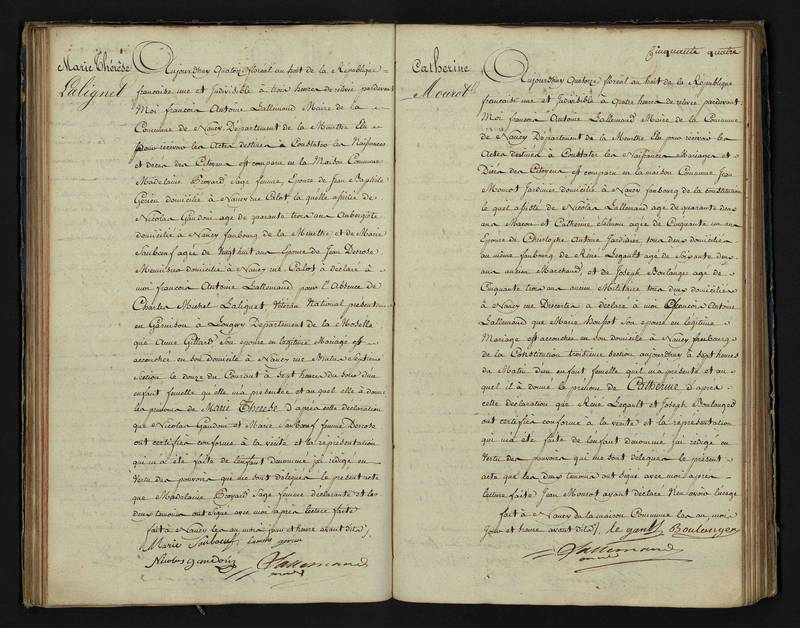 Marie Thérèse
Lalignel
Aujourd'huy quatorze floreal an huit de la République
francaise une et indivisible à trois heures de relevée pardevant
Moi françois Antoine Lallemand Maire de la
Commune de Nancy Département de la Meurthe Elu
pour recevoir les Actes destinés à Constater les Naissances
et décès des Citoyens est comparue en la Maison Commune
Madelaine Sage femme, Epouse de Jean Baptiste
domicilié à Nancy rue Calot la quelle assistée de
Nicolas Gaudoin agé de quarante trois ans Aubergiste
domicilié à Nancy faubourg de la Meurthe et de Marie
agée de Vingt huit ans Epouse de Jean Derose
Menuisier domicilié à Nancy rue Calot à déclaré à
moi francois Antoine Lallemand pour l'absence de
Charles Michel Lalignel, National presentement
en Garnison à Longwy Departement de la Moselle
que Anne Gillard Son epouse en legitime Mariage est
accouchée en son domicile à Nancy rue Septieme
Section le douze du Courant à sept heures du soir d'un
enfant femelle qu'elle m'a presentée et au quel elle à donné
les prenoms de Marie Therese d'après cette déclaration
que Nicolas Gaudoin et Marie femme Derose
ont certifiés conforme à la vérité et la représentation
qui m'a été faite de l'enfant denommé j'ai redigé en
Vertu des pouvoirs qui me sont délégués le present acte
que Madelaine Sage femme déclarante et les
deux temoins ont signé avec moi après lecture faite
fait à Nancy les an, mois jour et heure avant dits /.
Marie
Nicolas gaudoin Lallemand
Cinquante quatre
Catherine
Mourot
Aujourd'huy quatorze floreal an huit de la République
francaise une et Indivisible à quatre heures de relevée pardevant
Moi françois Antoine Lallemand Maire de la Commune
de Nancy Département de la Meurthe Elu pour recevoir les
Actes destinés à Constater les Naissances Mariages et
Décès des Citoyens est comparu en la maison Commune Jean
Mourot Jardinier domicilié à Nancy faubourg de la constitution
le quel assisté de Nicolas Lallemand agé de quarante deux
ans Macon et Catherine agée de Cinquante un ans
Epouse de Christophe Antoine Jardinier tous deux domiciliés
au même faubourg de Réné Legault agé de Soixante deux
ans ancien Marchand, et de Joseph Boulanger agé de
Cinquante trois ans ancien Militaire tous deux domiciliés
à Nancy rue Descartes a déclaré à moi François Antoine
Lallemand que Marie Son epouse en legitime
Mariage est accouchée en son domicile à Nancy faubourg
de la Constitution troisieme section aujourd'huy à sept heures
du Matin d'un enfant femelle quil m'a presenté et au
quel il à donné le prénom de Catherine d'après
cette déclaration que Réné Legault et Joseph Boulanger
ont certifiés conforme à la verité et la représentation
qui m'a été faite de l'enfant denommé j'ai redigé en
Vertu des pouvoirs qui me sont délégués le présent
acte que les deux temoins ont signé avec moi après
lecture faite Jean Mourot ayant déclaré N'en avoir l'usage
fait à Nancy en la maison Commune les an, mois
Jour et heure avant dits /. le gault Boulanger
Lallemand